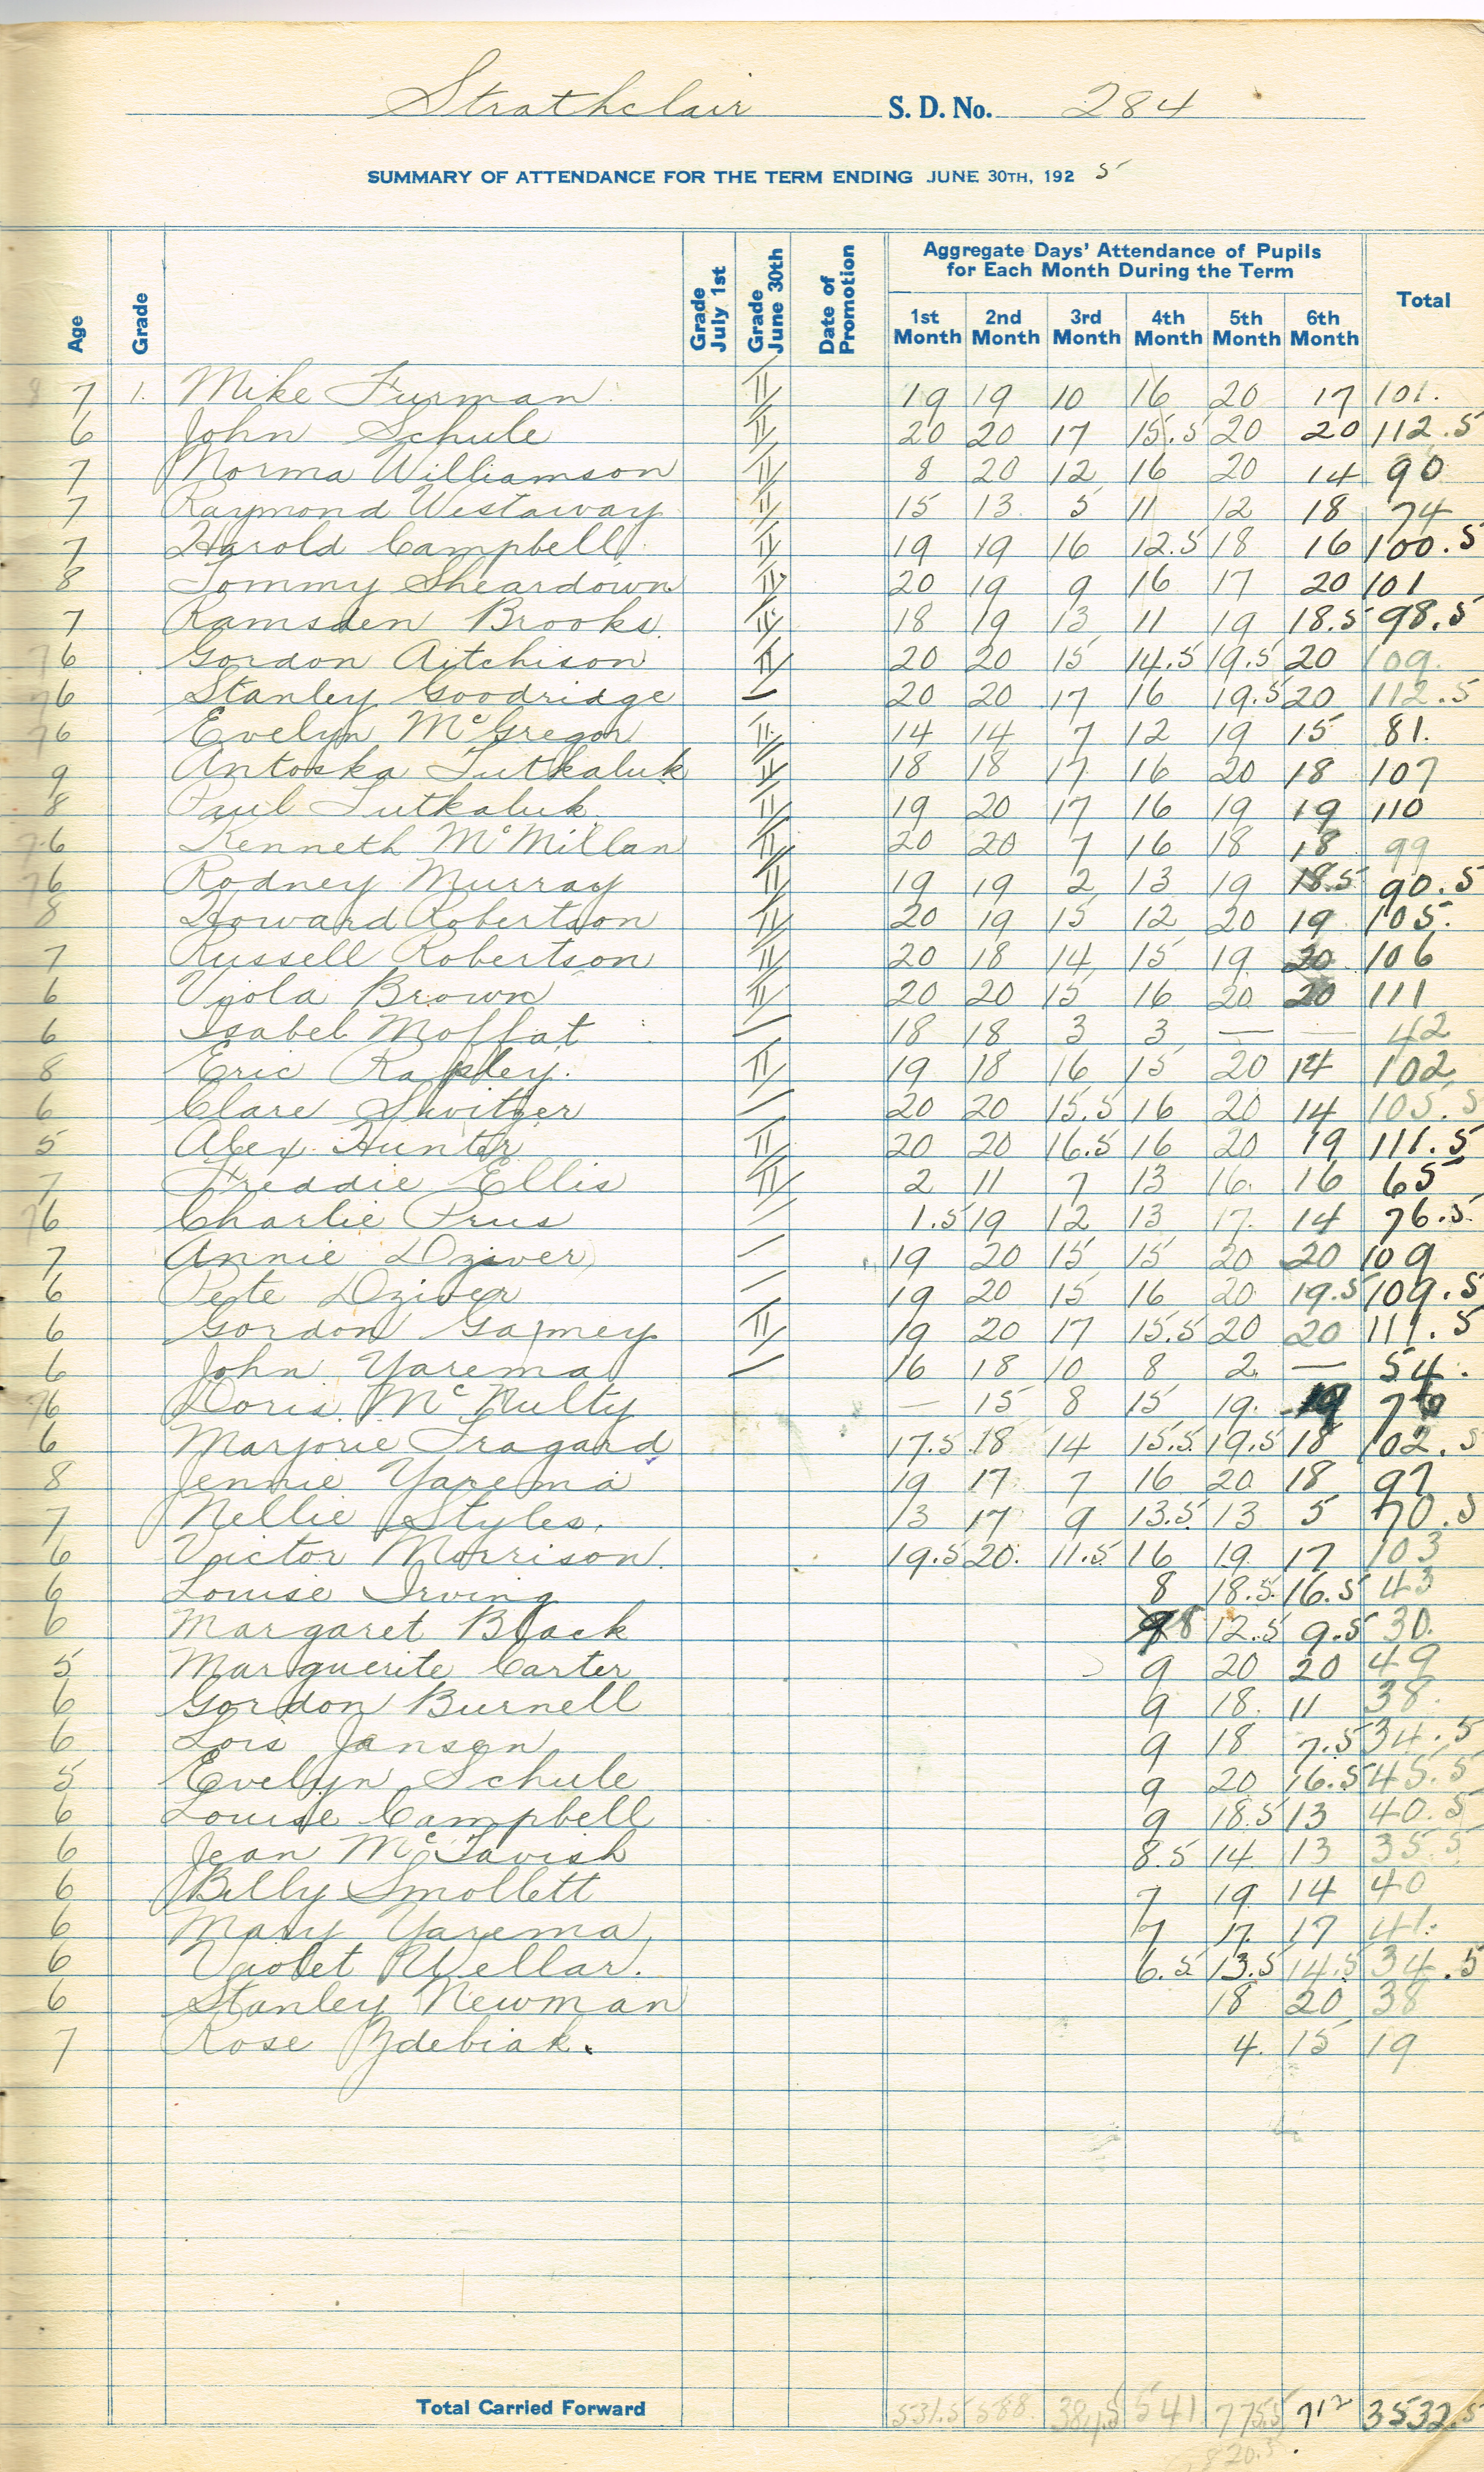 Strathclair S. D. No. 284
SUMMARY OF ATTENDANCE FOR THE TERM ENDING JUNE 30TH, 1925
Age Grade Grade July 1st Grade June 30th Date of Promotion Aggregate Days' Attendance of Pupils for Each Month During the Term Total
1st Month 2nd Month 3rd Month 4th Month 5th Month 6th Month
7 1. Mike Furman II 19 19 10 16 20 17 101.
6 John Schule II 20 20 17 15.5 20 20 112.5
7 Norma Williamson II 8 20 12 16 20 14 90
7 Raymond Westaway II 15 13 5 11 12 18 74
7 Harold Campbell II 19 19 16 12.5 18 16 100.5
8 Tommy Sheardown II 20 19 9 16 17 20 101
7 Ramsden Brooks II 18 19 13 11 19 18.5 98.5
6 Gordon Aitchison II 20 20 15 14.5 19.5 20 109.
6 Stanley Goodridge — 20 20 17 16 19.5 20 112.5
6 Evelyn McGregor II 14 14 7 12 19 15 81.
9 Antoska Tutkaluk II 18 18 17 16 20 18 107
8 Paul Tutkaluk II 19 20 17 16 19 19 110
6 Kenneth McMillan II 20 20 7 16 18 18 99
6 Rodney Murray II 19 19 2 13 19 18.5 90.5
8 Howard Robertson II 20 19 15 12 20 19 105.
7 Russell Robertson II 20 18 14 15 19 20 106
6 Viola Brown II 20 20 15 16 20 20 111
6 Isabel Moffat — 18 18 3 3 — — 42
8 Eric Rapley. II 19 18 16 15 20 14 102
6 Clare Switzer — 20 20 15.5 16 20 14 105.5
5 Alex Hunter II 20 20 16.5 16 20 19 111.5
7 Freddie Ellis II 2 11 7 13 16. 16 65
6 Charlie Prus — 1.5 19 12 13 17. 14 76.5
7 Annie Dziver — 19 20 15 15 20 20 109
6 Pete Dziver — 19 20 15 16 20 19.5 109.5
6 Gordon Gamey II 19 20 17 15.5 20 20 111.5
6 John Yarema — 16 18 10 8 2 — 54.
6 Doris McNulty — 15 8 15 19. 19 76
6 Marjorie Fragard 17.5 18 14 15.5 19.5 18 102.5
8 Jennie Yarema 19 17 7 16 20 18 97
7 Nellie Styles. 13 17 9 13.5 13 5 70.5
6 Victor Morrison. 19.5 20. 11.5 16 19 17 103
6 Louise Irving 8 18.5 16.5 43
6 Margaret Black 8 12.5 9.5 30.
5 Marguerite Carter 9 20 20 49
6 Gordon Burnell 9 18. 11 38.
6 Lois Jansen 9 18 7.5 34.5
5 Evelyn Schule 9 20 16.5 45.5
6 Louise Campbell 9 18.5 13 40.5
6 Jean McTavish 8.5 14 13 35.5
6 Billy Smollett 7 19 14 40
6 Mary Yarema 7 17. 17 41.
6 Violet Wellar. 6.5 13.5 14.5 34.5
6 Stanley Newman 18 20 38
7 Rose Zdebiak. 4. 15 19
Total Carried Forward 531.5 588. 384.5 541 775.5 712 3532.5
820.5